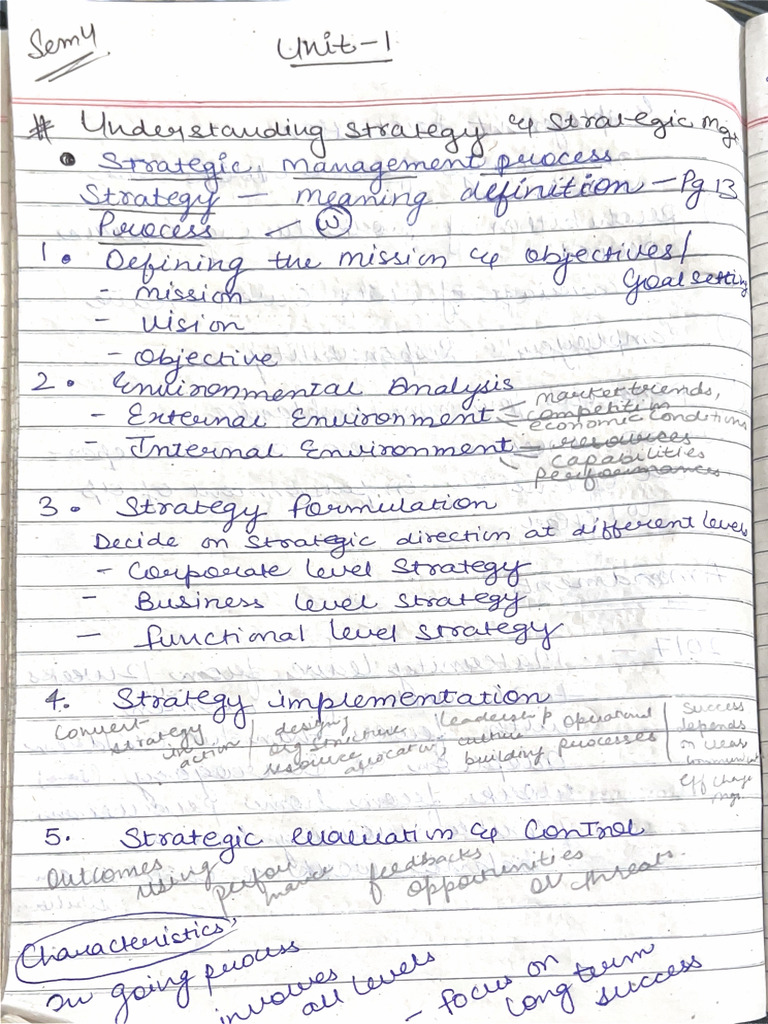 Sem 4
Unit-1
# Understanding strategy & strategic mgt
• Strategic management process
Strategy - meaning definition - Pg 13
Process - (W)
1. Defining the mission & objectives/
Goal setting
- mission
- vision
- objective
2. Environmental Analysis
- External Environment - market trends,
competition
economic conditions
- Internal Environment - resources
capabilities
performances
3. Strategy formulation
Decide on strategic direction at different levels
- Corporate level strategy
- Business level strategy
- functional level strategy
4. Strategy implementation
Convert strategy into action / designing org structure resource allocation, leadership culture building, operational processes | success depends on clear communicat eff change mgt.
5. Strategic evaluation & Control
Outcomes using performance feedbacks opportunities or threats.
Characteristics
on going process
involves all levels
- focus on long term success